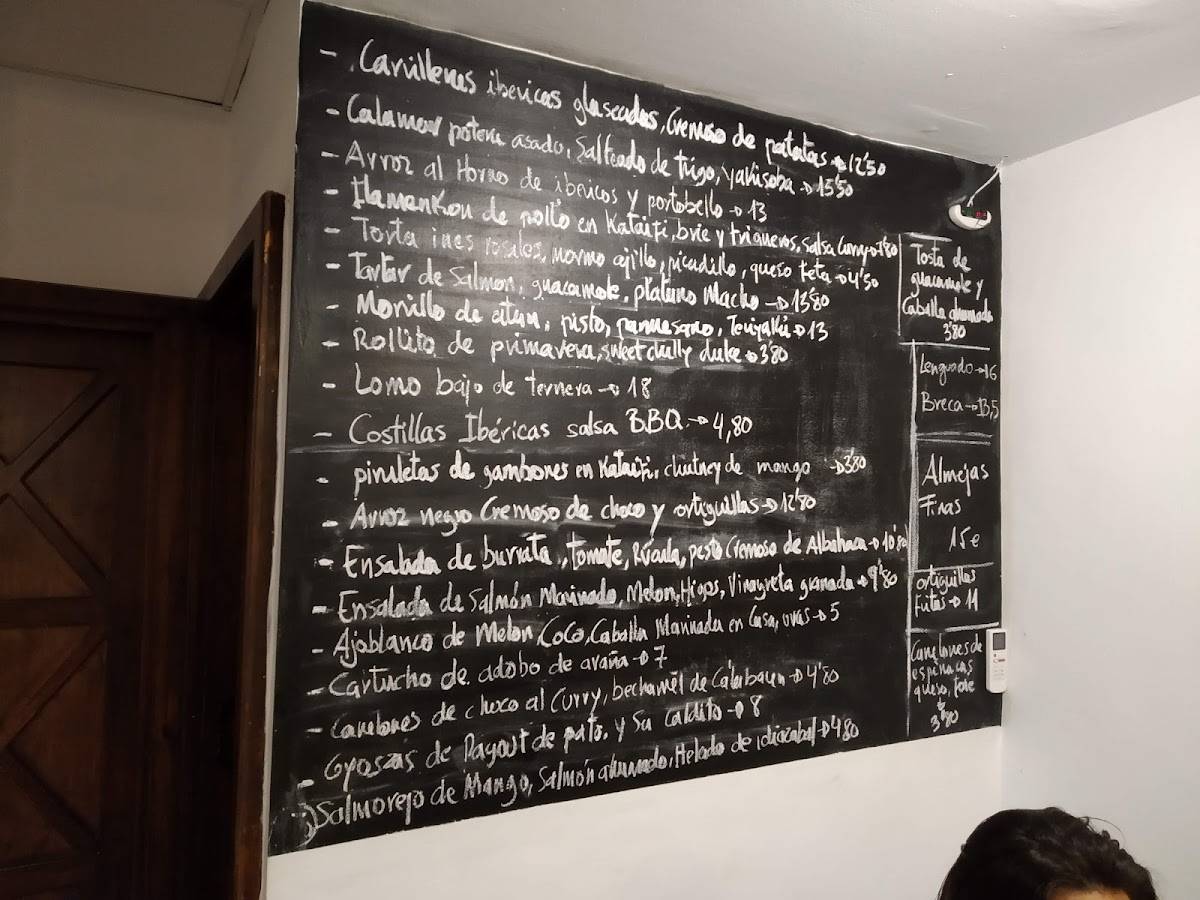 - Carrilleras ibericas glaseadas, Cremoso de patatas → 12'50
- Calamar potera asado, Salteado de trigo, Yakisoba → 15'50
- Arroz al Horno de ibericos y portobello → 13
- Flamenkon de pollo en Kataifi, brie y trigueros, salsa Curry → 7'80
- Torta ines rosales, mormo ajillo, picadillo, queso teta → 4'50
- Tartar de Salmon, guacamole, platano Macho → 13'80
- Morrillo de atun, pisto, parmesano, Teriyaki → 13
- Rollito de primavera, sweet chilly dulce → 3'80
- Lomo bajo de ternera → 18
- Costillas Ibéricas salsa BBQ → 4,80
- piruletas de gambones en Kataifi, chutney de mango → 3'80
- Arroz negro Cremoso de choco y ortiguillas → 12'80
- Ensalada de burrata, tomate, Rúcula, pesto Cremoso de Albahaca → 10'80
- Ensalada de Salmón Marinado, Melon, Higos, Vinagreta granada → 9'80
- Ajoblanco de Melon, Coco, Caballa Marinada en Casa, uvas → 5
- Cartucho de adobo de araña → 7
- Canelones de choco al Curry, bechamel de → 4'80
- Gyozas de Ragout de pato, y Su Caldito → 8
Salmorejo de Mango, Salmón ahumado, Helado de idiazabal → 4'80
Tosta de
guacamole y
Caballa ahumada
3'80
Lenguado → 16
Breca → 13,5
Almejas
Finas
15€
ortiguillas
fritas → 11
Canelones de
espinacas
queso, foie
3'80